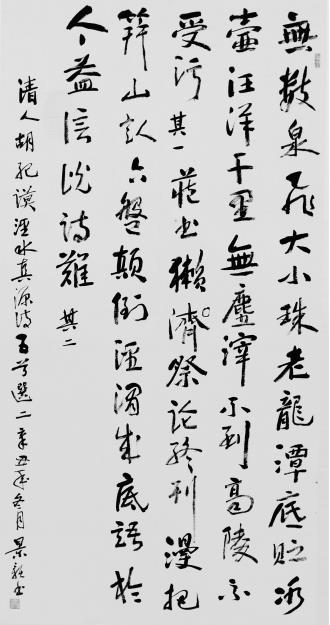 無數泉飛大小珠老龍潭底貯冰
壺汪洋千里無塵滓不到高陵不
受污 其一 書獺濟祭論終刊漫把
笄山認六盤顛倒涇成底語於
今益信説詩難 其二
清人胡紀謨涇水真源詩百首選二辛丑年冬月景書